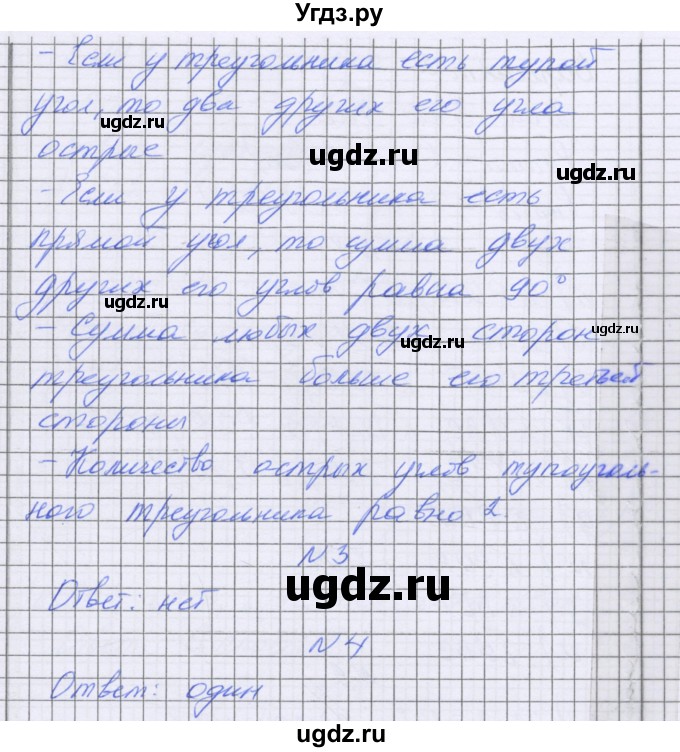 Угдз.ру
- Если у треугольника есть тупой
угол, то два других его угла
ugdz.ru
острые
ugdz.ru
- Если у треугольника есть
ugdz.ru
прямой угол, то сумма двух
других его углов равна 90°
ugdz.ru
- Сумма любых двух сторон
ugdz.ru
ugdz.ru
треугольника больше его третьей
стороны
- Количество острых углов тупоуголь-
ного треугольника равно 2.
N3
ugdz.ru
Ответ: нет
N4
Ответ: один
ugdz.ru
ugdz.ru